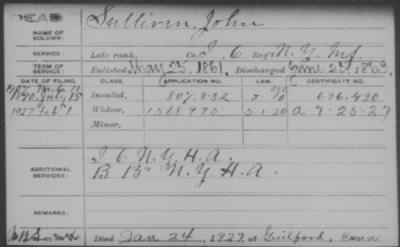 DEAD
NAME OF SOLDIER: Sullivan, John
SERVICE: Late rank, Co. I, 6 Reg't N.Y. Inf.
TERM OF SERVICE: Enlisted May 25, 1861, Discharged June 25, 1863
DATE OF FILING. CLASS. APPLICATION NO. LAW. CERTIFICATE NO.
1890 July 15 Invalid, 807.832 636.430
1927 Widow, 1568975 5-1-20 a-7-25-27
Minor,
ADDITIONAL SERVICES:
I 6 N.Y. H.A.
B 13" N.Y. H.A.
REMARKS:
Died Jan 24, 1927, at Guilford, Conn